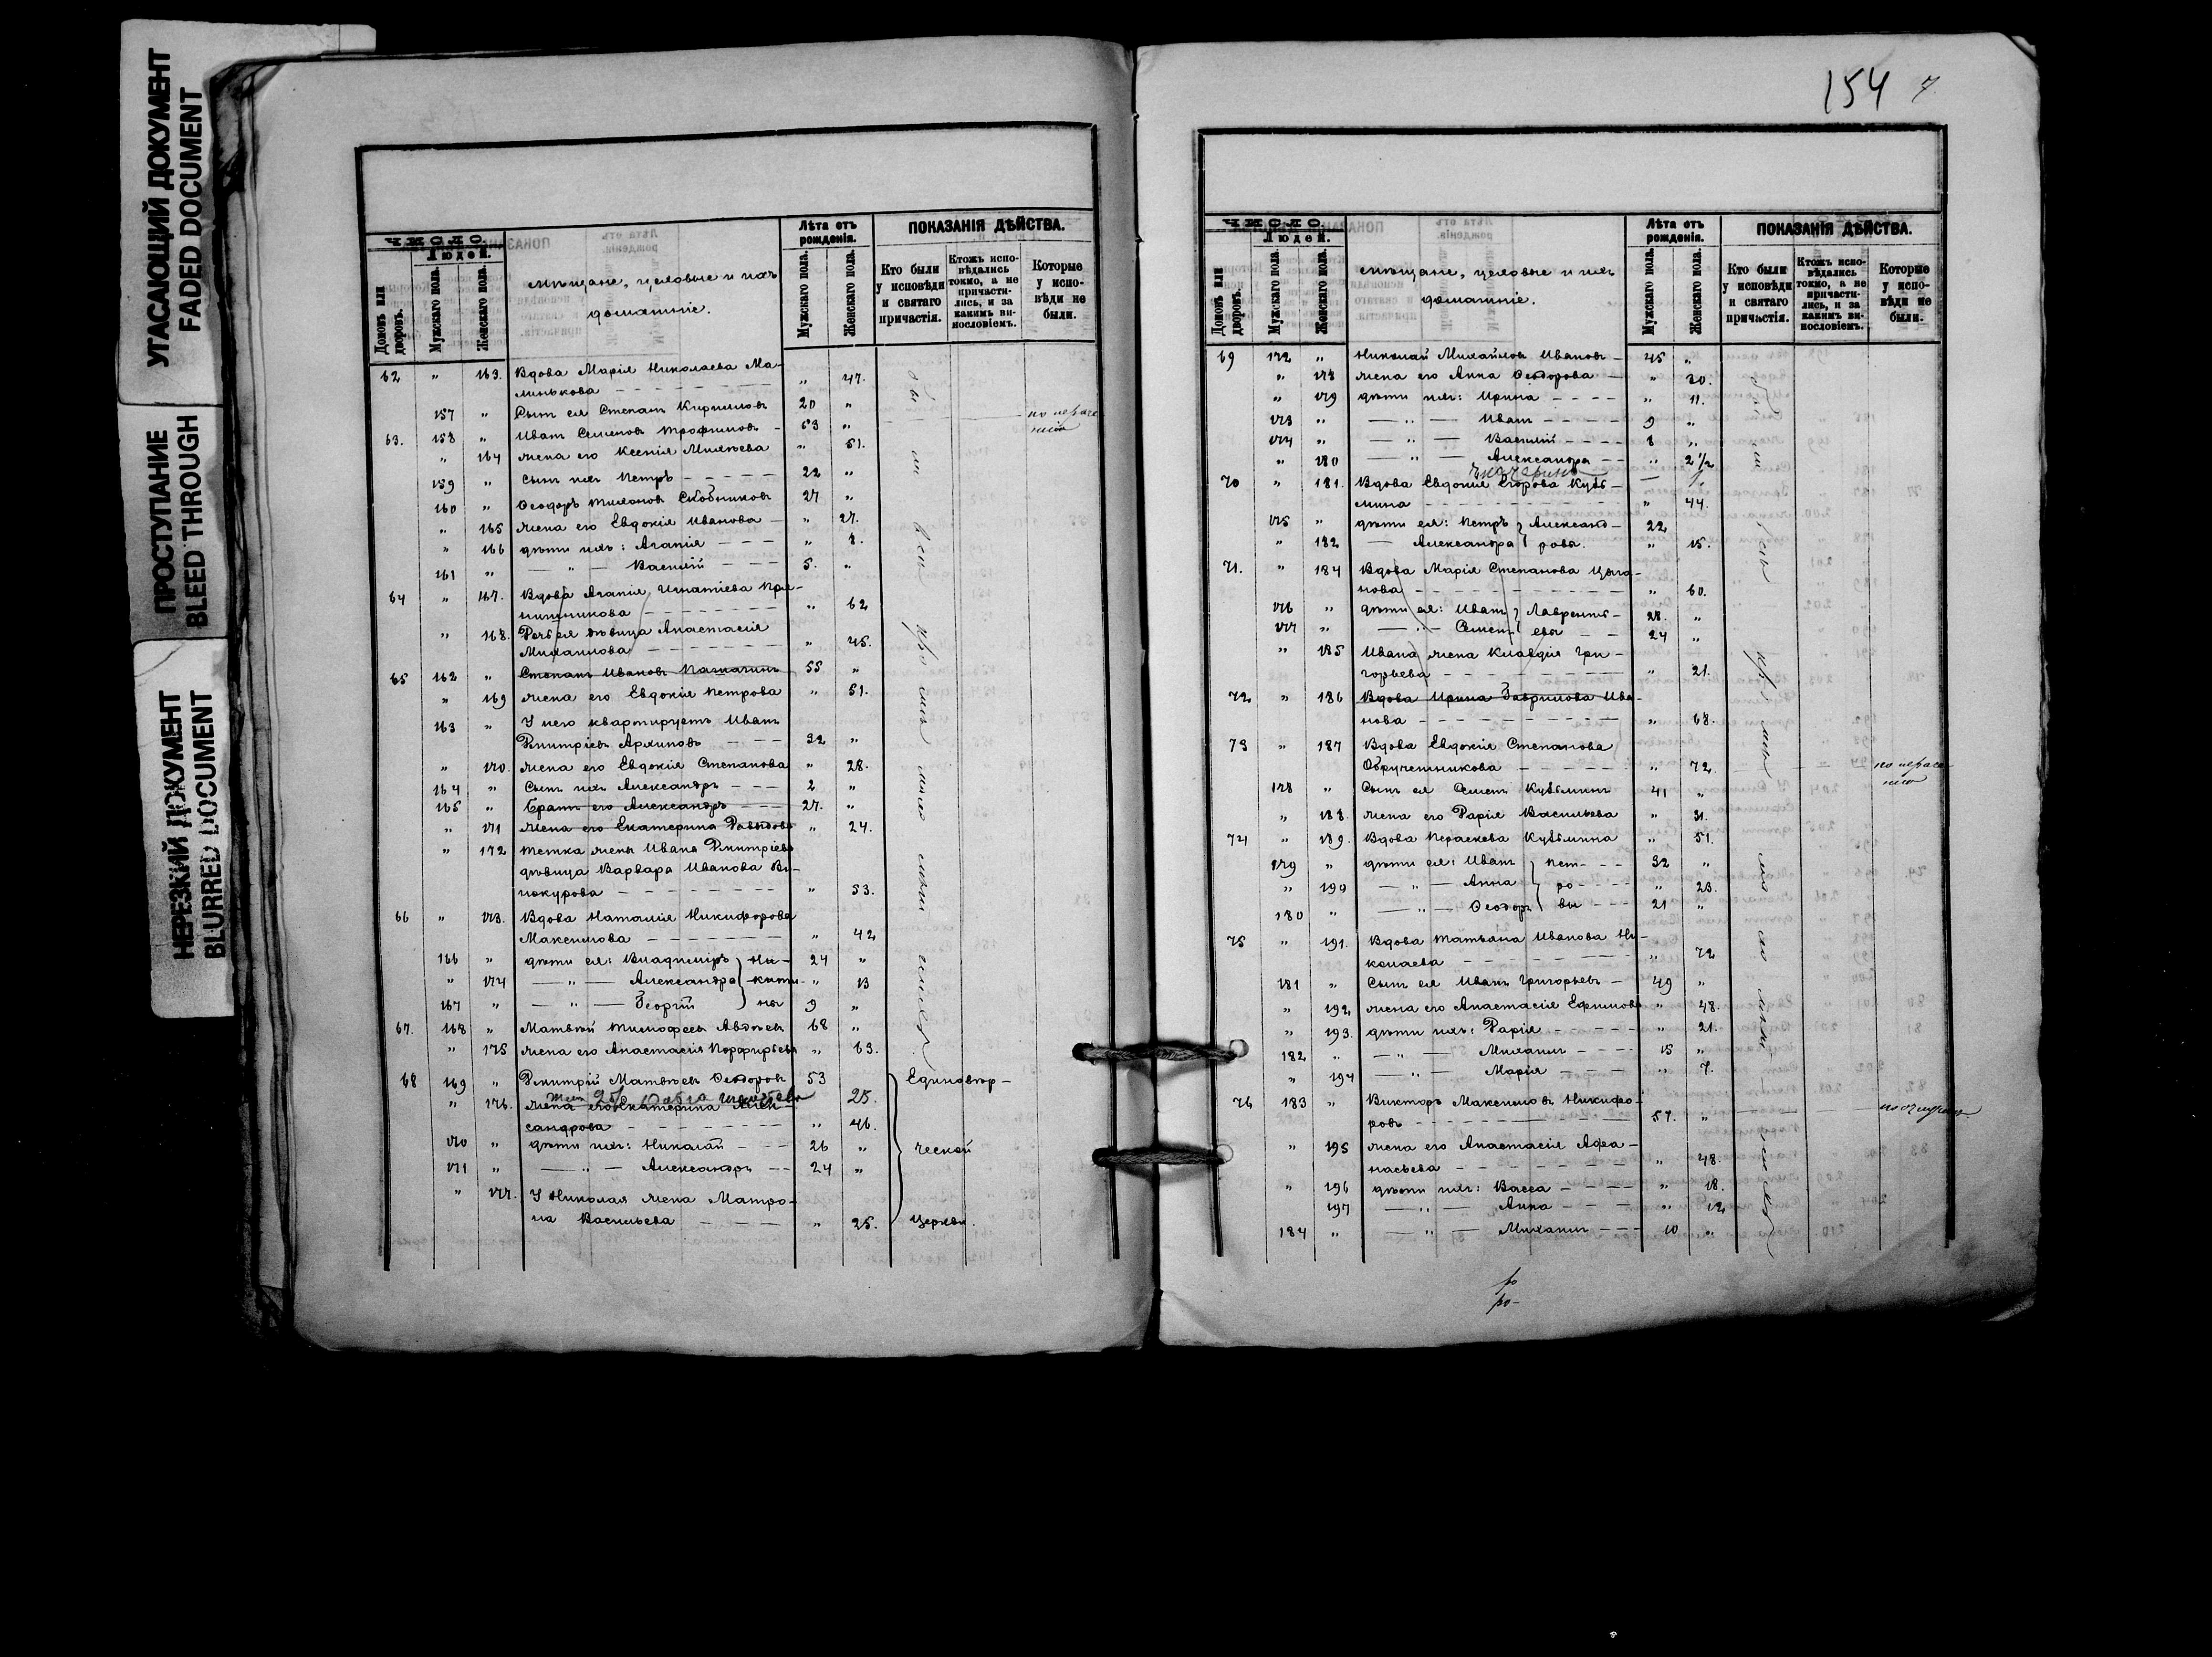 УГАСАЮЩИЙ ДОКУМЕНТ
FADED DOCUMENT
ПРОСТУПАНИЕ
BLEED THROUGH
НЕРЕЗКИЙ ДОКУМЕНТ
BLURRED DOCUMENT
ЧИСЛО
Людей.
Домовъ или дворовъ.
Мужскаго пола.
Женскаго пола.
мѣщане, цеховые и ихъ
домашніе.
Лѣта отъ рожденія.
Мужскаго пола.
Женскаго пола.
ПОКАЗАНІЯ ДѢЙСТВА.
Кто были у исповѣди и святаго причастія.
Ктожъ испо-вѣдались токмо, а не причасти-лись, и за какимъ ви-нословіемъ.
Которые у испо-вѣди не были.
62 " 163. Вдова Марія Николаева Ма-
линькова " 47.
157 " Сынъ ея Стефанъ Кирилловъ 20 "
63. 158 " Иванъ Семеновъ Трофимовъ 53 " по нераче-
нію
" 164 жена его Ксенія Михѣева " 51.
159 " Сынъ ихъ Петръ 22 "
160 " Ѳеодоръ Тихоновъ Скобниковъ 27 "
" 165 жена его Евдокія Иванова " 27.
" 166 дѣти ихъ: Агапія " 8.
161 " — " — Василій 5. "
64 " 167. Вдова Агапія Игнатіева Пря-
нишникова " 62
" 168. Дочь ея дѣвица Анастасія
Михаилова " 45.
65 162 " Степанъ Ивановъ 55 "
" 169 жена его Евдокія Петрова " 51.
163 " У него квартируетъ Иванъ
Димитріевъ Архиповъ 32 "
" 170. жена его Евдокія Степанова " 28.
164 " Сынъ ихъ Александръ 2 "
165 " Братъ его Александръ 27. "
" 171 жена его Екатерина Давыдова " 24.
" 172 Тетка жены Ивана Димитріева
дѣвица Варвара Иванова Ви-
нокурова " 53.
66 " 173. Вдова Наталія Никифорова
Максимова " 42
166 " дѣти ея: Владиміръ } Ни- 24 "
" 174 — " — Александра } кити- " 13
167 " — " — Георгій } ны 9 "
67. 168 " Матвѣй Тимофеевъ Авдѣевъ 68 "
" 175 жена его Анастасія Порфирьева " 63.
68 169 " Димитрій Матвѣевъ Ѳеодоровъ 53 Единовѣр-
25.
" 176. жена его Екатерина Алек-
сандрова " 46.
170 " дѣти ихъ: Николай 26 " ческой
171 " — " — Александръ 24 "
" 177. У Николая жена Матро-
на Васильева " 25. Церкви.
154 7.
ЧИСЛО
Людей.
Домовъ или дворовъ.
Мужскаго пола.
Женскаго пола.
мѣщане, цеховые и ихъ
домашніе.
Лѣта отъ рожденія.
Мужскаго пола.
Женскаго пола.
ПОКАЗАНІЯ ДѢЙСТВА.
Кто были у исповѣди и святаго причастія.
Ктожъ испо-вѣдались токмо, а не причасти-лись, и за какимъ ви-нословіемъ.
Которые у испо-вѣди не были.
69 172 " Николай Михайловъ Ивановъ 45 "
" 178 жена его Анна Ѳеодорова " 30.
" 179 дѣти ихъ: Ирина " 11.
173 " — " — Иванъ 9 "
174 " — " — Василій 8 "
" 180 — " — Александра " 2 1/2
Екатерина 1
70 " 181. Вдова Евдокія Егорова Кузь-
мина " 44.
175 " дѣти ея: Петръ } Александ- 22
" 182 — Александра } рова. " 15.
71. " 184 Вдова Марія Степанова Цыга-
нова " 60.
176 " дѣти ея: Иванъ } Лаврентѣ- 28. "
177 " — " — Семенъ } евы 24 "
" 185 Ивана жена Клавдія Гри-
горьева " 21.
72 " 186 Вдова Ирина Гаврилова Ива-
нова " 68.
73 " 187 Вдова Евдокія Степанова
Обручешникова " 72. по нераче-
нію
178 " Сынъ ея Семенъ Кузьминъ 41 "
" 188. жена его Дарія Васильева " 31.
74 " 189. Вдова Параскева Кузьмина " 51.
179 " дѣти ея: Иванъ } Пет- 32 "
" 190 — " — Анна } ро- " 23.
180 " — " — Ѳеодоръ } вы 21 "
75 " 191. Вдова Татьяна Иванова Ни-
колаева " 72
181 " Сынъ ея Иванъ Григорьевъ 49 "
" 192 жена его Анастасія Ефимова " 48.
" 193. дѣти ихъ: Дарія " 21.
182 " — " — Михаилъ 15 "
" 194 — " — Марія " 7.
76 183 " Викторъ Максимовъ Никифо-
ровъ 57. "
" 195 жена его Анастасія Афа-
насьева " 48.
" 196 дѣти ихъ: Васса " 18.
197 — " — Анна " 12
184 " — " — Михаилъ 10 "
ро
ро-